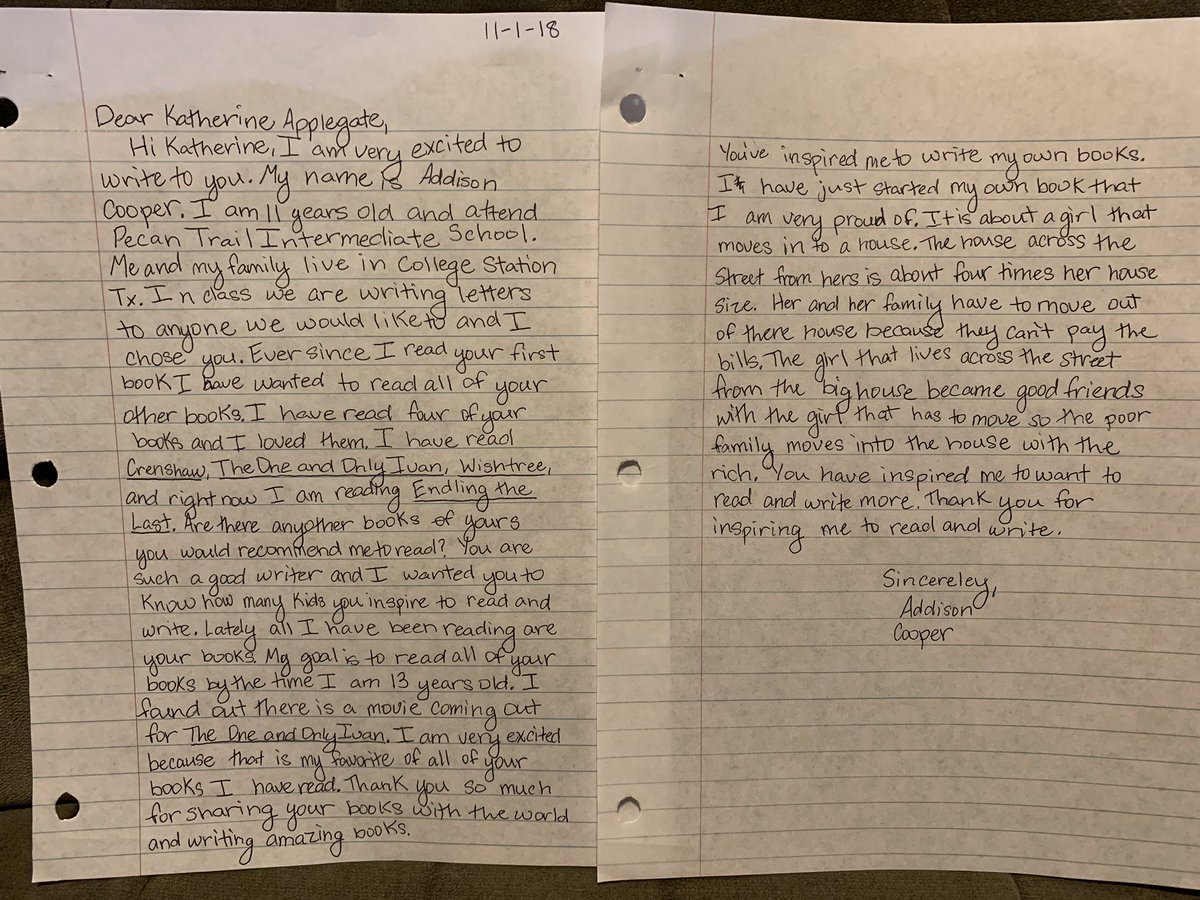 11-1-18
Dear Katherine Applegate,
Hi Katherine, I am very excited to
write to you. My name is Addison
Cooper. I am 11 years old and attend
Pecan Trail Intermediate School.
Me and my family live in College Station
Tx. In class we are writing letters
to anyone we would like to and I
chose you. Ever since I read your first
book I have wanted to read all of your
other books. I have read four of your
books and I loved them. I have read
Crenshaw, The One and Only Ivan, Wishtree,
and right now I am reading Endling the
Last. Are there anyother books of yours
you would recommend me to read? You are
such a good writer and I wanted you to
Know how many Kids you inspire to read and
write. Lately all I have been reading are
your books. My goal is to read all of your
books by the time I am 13 years old. I
found out there is a movie coming out
for The One and Only Ivan. I am very excited
because that is my favorite of all of your
books I have read. Thank you so much
for sharing your books with the world
and writing amazing books.
You've inspired me to write my own books.
I have just started my own book that
I am very proud of. It is about a girl that
moves in to a house. The house across the
Street from hers is about four times her house
size. Her and her family have to move out
of there house because they can't pay the
bills. The girl that lives across the street
from the big house became good friends
with the girl that has to move so the poor
family moves into the house with the
rich. You have inspired me to want to
read and write more. Thank you for
inspiring me to read and write.
Sincereley,
Addison
Cooper